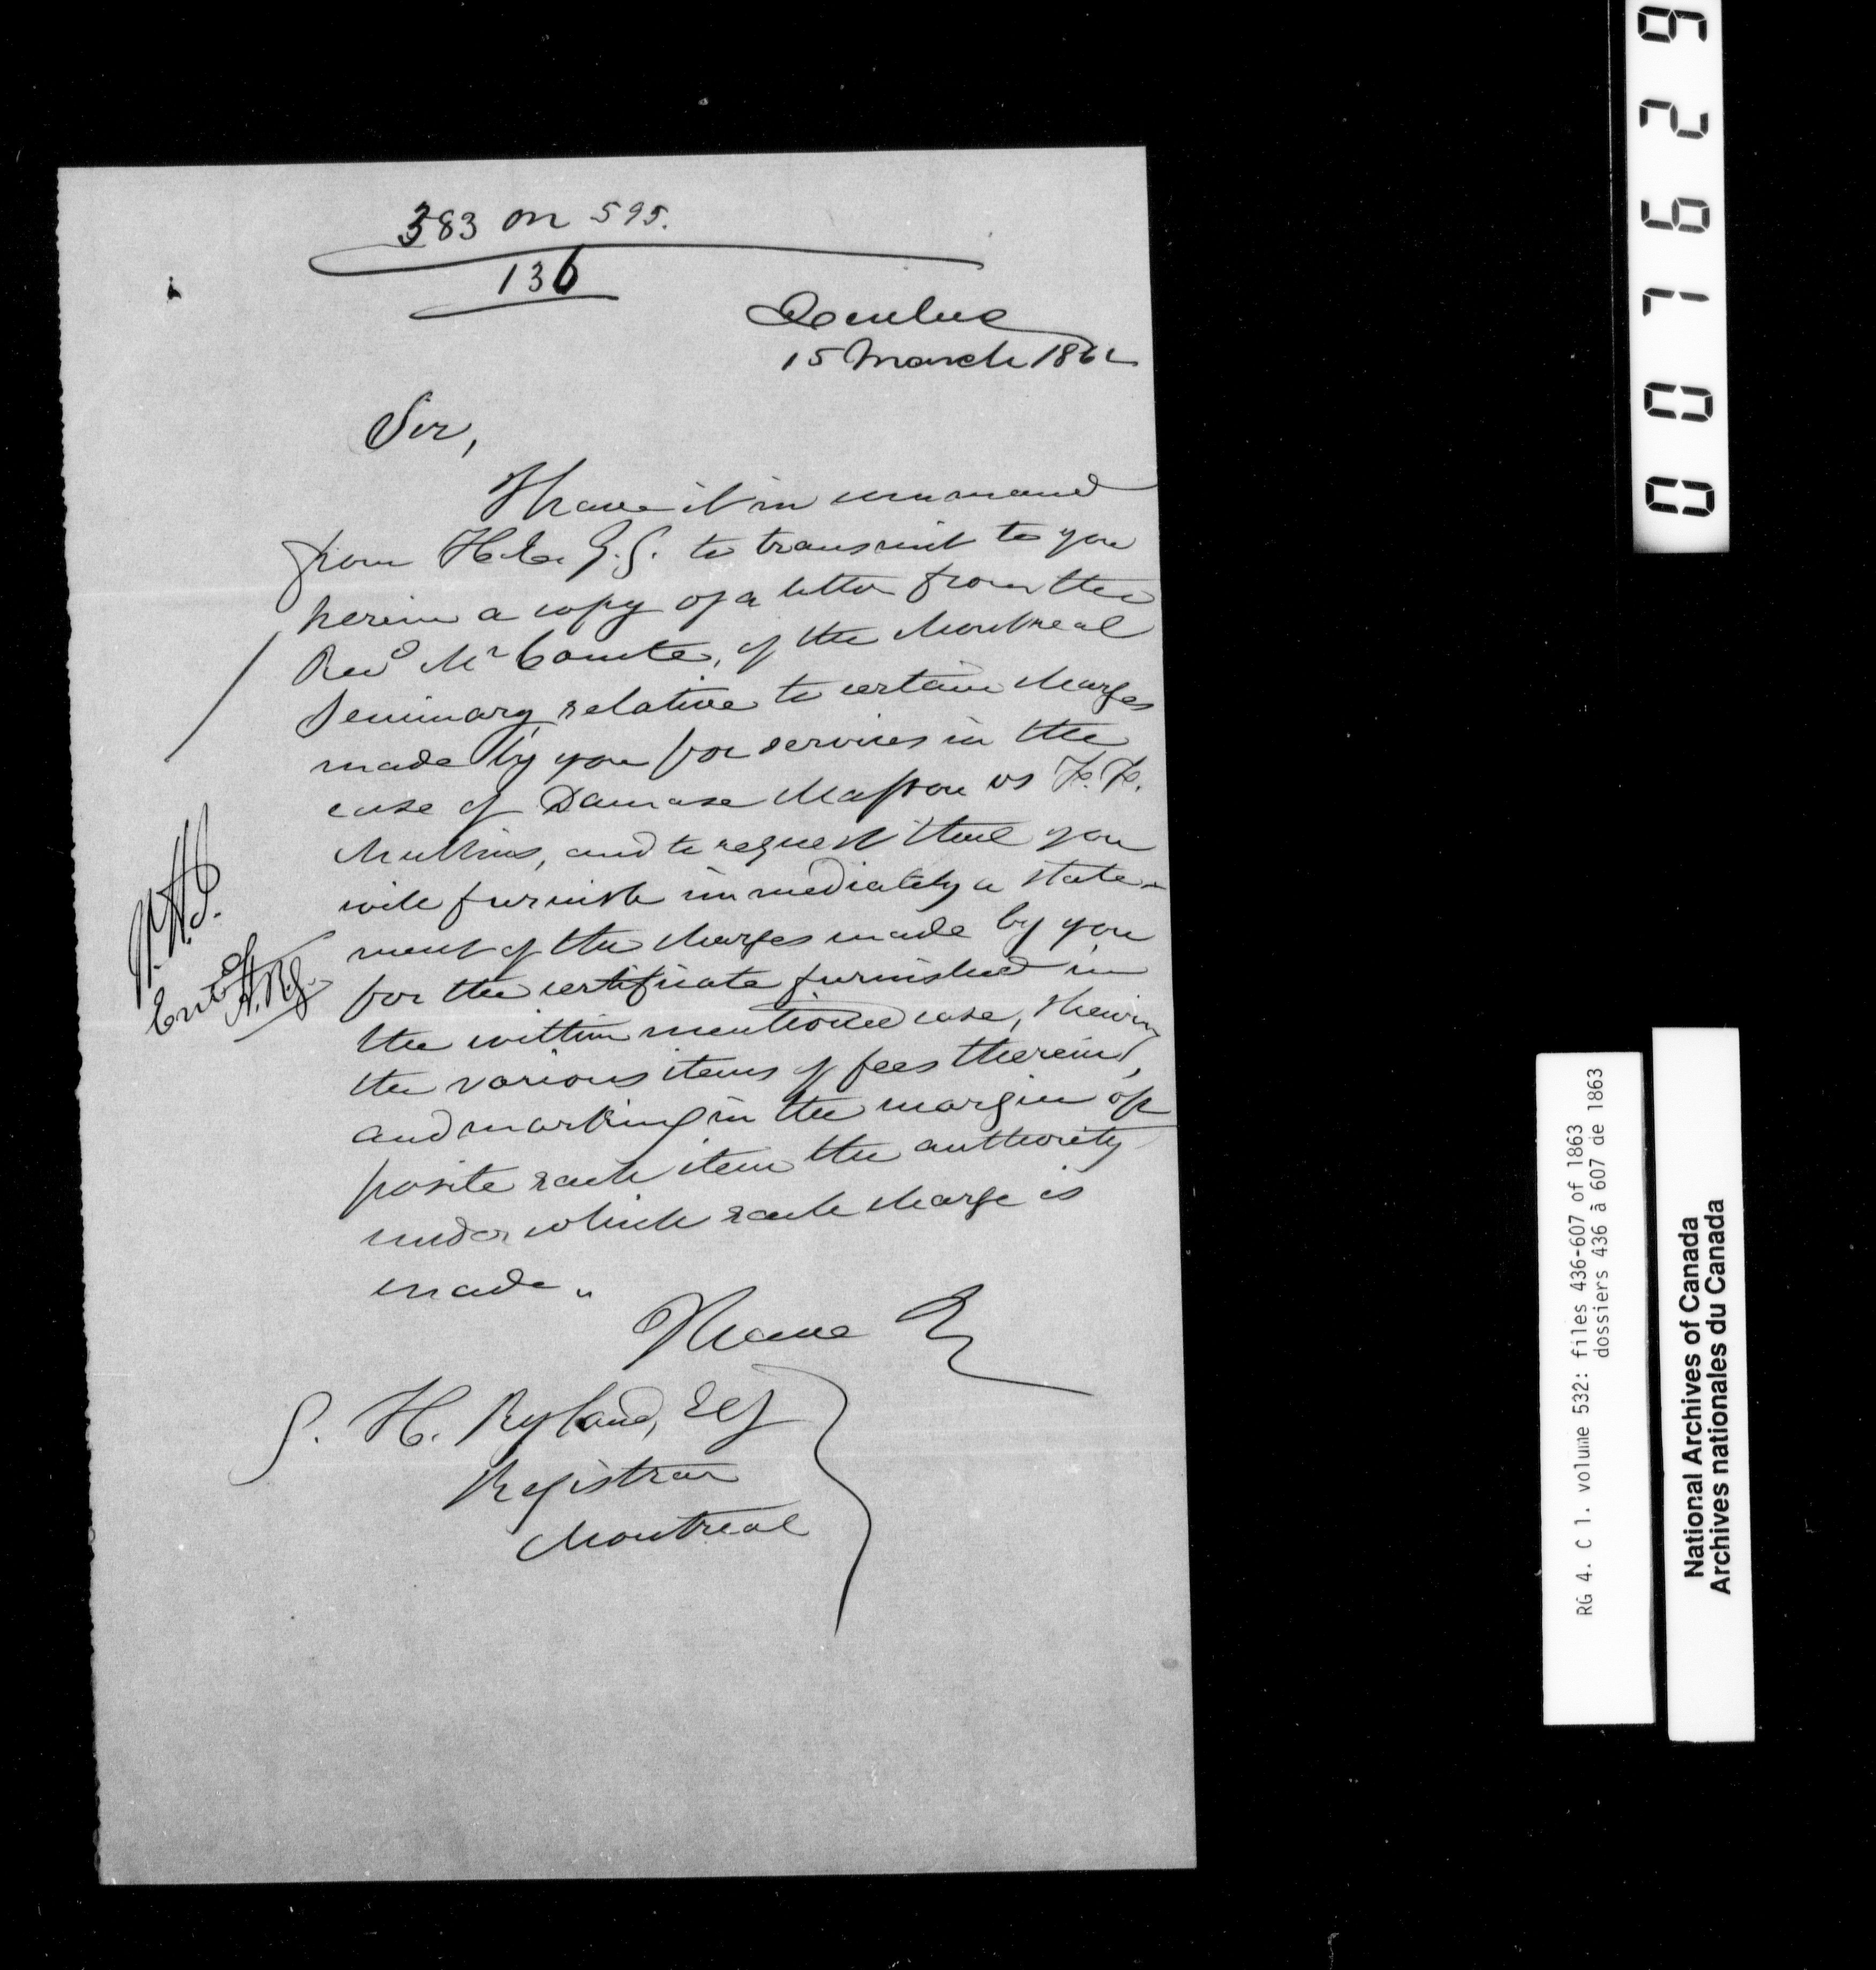 383 on 595.
136
Quebec
15 March 1862
Sir,
I have it in command
from H. E. G. G. to transmit to you
herein a copy of a letter from the
Revd Mr Comte, of the Montreal
Seminary relative to certain charges
made by you for services in the
case of Damase Masson vs
Mullins, and to request that you
will furnish immediately a state-
ment of the charges made by you
for the certificate furnished in
the within mentioned case, shewing
the various items of fees therein,
and marking in the margin op
posite each item the authority
under which each charge is
made.
I have &
G. H. Ryland, Esq
Registrar
Montreal
Entd
007629
RG 4. C 1. volume 532: files 436-607 of 1863
dossiers 436 à 607 de 1863
National Archives of Canada
Archives nationales du Canada